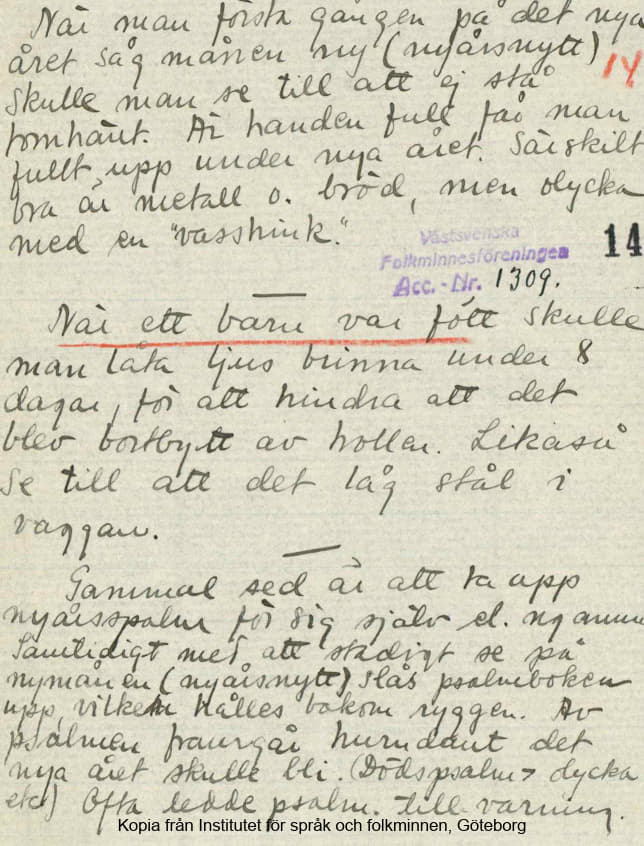 När man första gången på det nya
året såg månen ny (nyårsnytt)
14
skulle man se till att ej stå
tomhänt. Är handen full får man
fullt upp under nya året. Särskilt
bra är metall o. bröd, men olycka
med en "vasshink."
Västsvenska
Folkminnesföreningen
14
Acc.-Nr. 1309.
När ett barn var fött skulle
man låta ljus brinna under 8
dagar, för att hindra att det
blev bortbytt av trollen. Likaså
se till att det låg stål i
vaggan.
Gammal sed är att ta upp
nyårspsalm för sig själv el. någon
Samtidigt med att stadigt se på
nymånen (nyårsnytt) slås psalmboken
upp, vilken hålles bakom ryggen. Av
psalmen framgår hurudant det
nya året skulle bli. (Dödspsalm > olycka
etc) Ofta ledde psalm. till varning.
Kopia från Institutet för språk och folkminnen, Göteborg